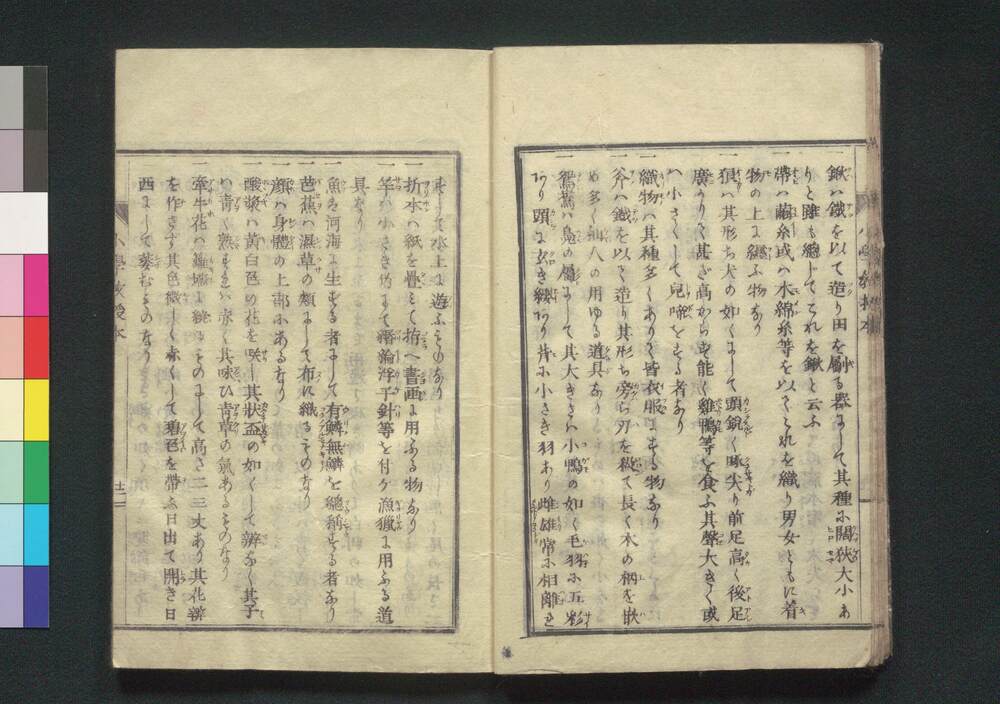 一 鍬ハ鐵を以て造り田を耕る器にして其種に闊狹大小あ
りと雖も總じてこれを鍬と云ふ
一 帶ハ繭糸或ハ木綿糸等を以てこれを織り男女ともに着
物の上に纒ふ物なり
一 狼ハ其形ち犬の如くにして頭鋭く喙尖り前足高く後足
廣がりて甚だ高からず能く雞鴨等を食ふ其聲大きく或
ハ小さくして兒啼をする者なり
一 織物ハ其種多くありて皆衣服にする物なり
一 斧ハ鐵を以て造り其形ち旁ら刃を 長く木の柄を嵌
め多く 人の用ゆる道具なり
一 鴛鴦ハ鳧の屬にして其大きさハ小鴨の如く毛羽に五彩
あり頭に き あり 小さき羽あり雌雄常に相離れ
ずして水上に遊ふものなり
一 折本ハ紙を疊て拵へ書画に用ふる物なり
一 竿ハ小さき竹にて 浮子針等を付ケ漁獵に用ふる道
具なり
一 魚ハ河海に生ずる者にして有鱗無鱗を總稱する者なり
一 芭蕉ハ濕草の類にして布に織るものなり
一 顔ハ身體の上部にあるなり
一 酸漿ハ黄白色の花を咲し其状盃の如くして辨なく其子
ハ青く熟すれハ赤く其味ひ青草の氣あるものなり
一 牽牛花ハ籬墻に ものにして高さ二三丈あり其花辨
を作さず其色 しく赤くして碧色を帶ふ日出て開き日
西にして萎むものなり
小學教授本
十二